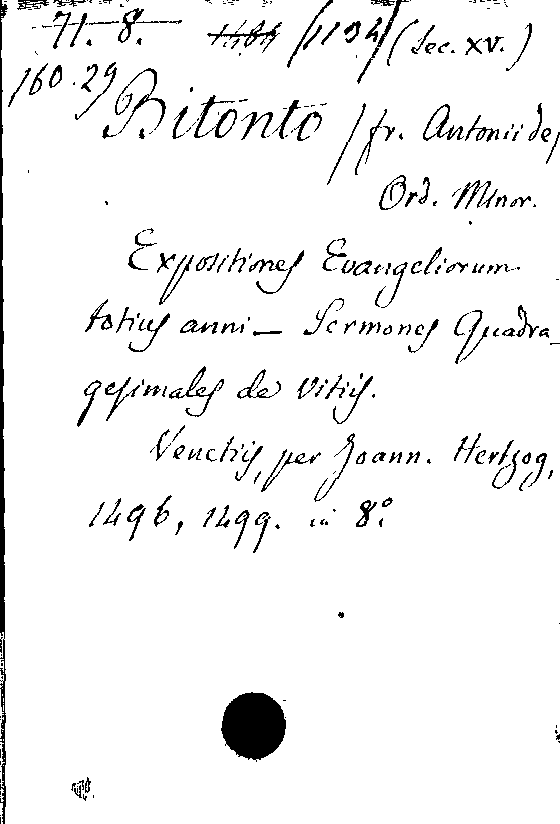 71. 8. /1134/ (Sec. XV.)
160.29
Bitonto /fr. Antonii de/
Ord. Minor.
Expositiones Evangeliorum
totius anni — Sermones Quadra-
gesimales de vitiis.
Venetiis, per Joann. Hertzog,
1496, 1499. in 8º.